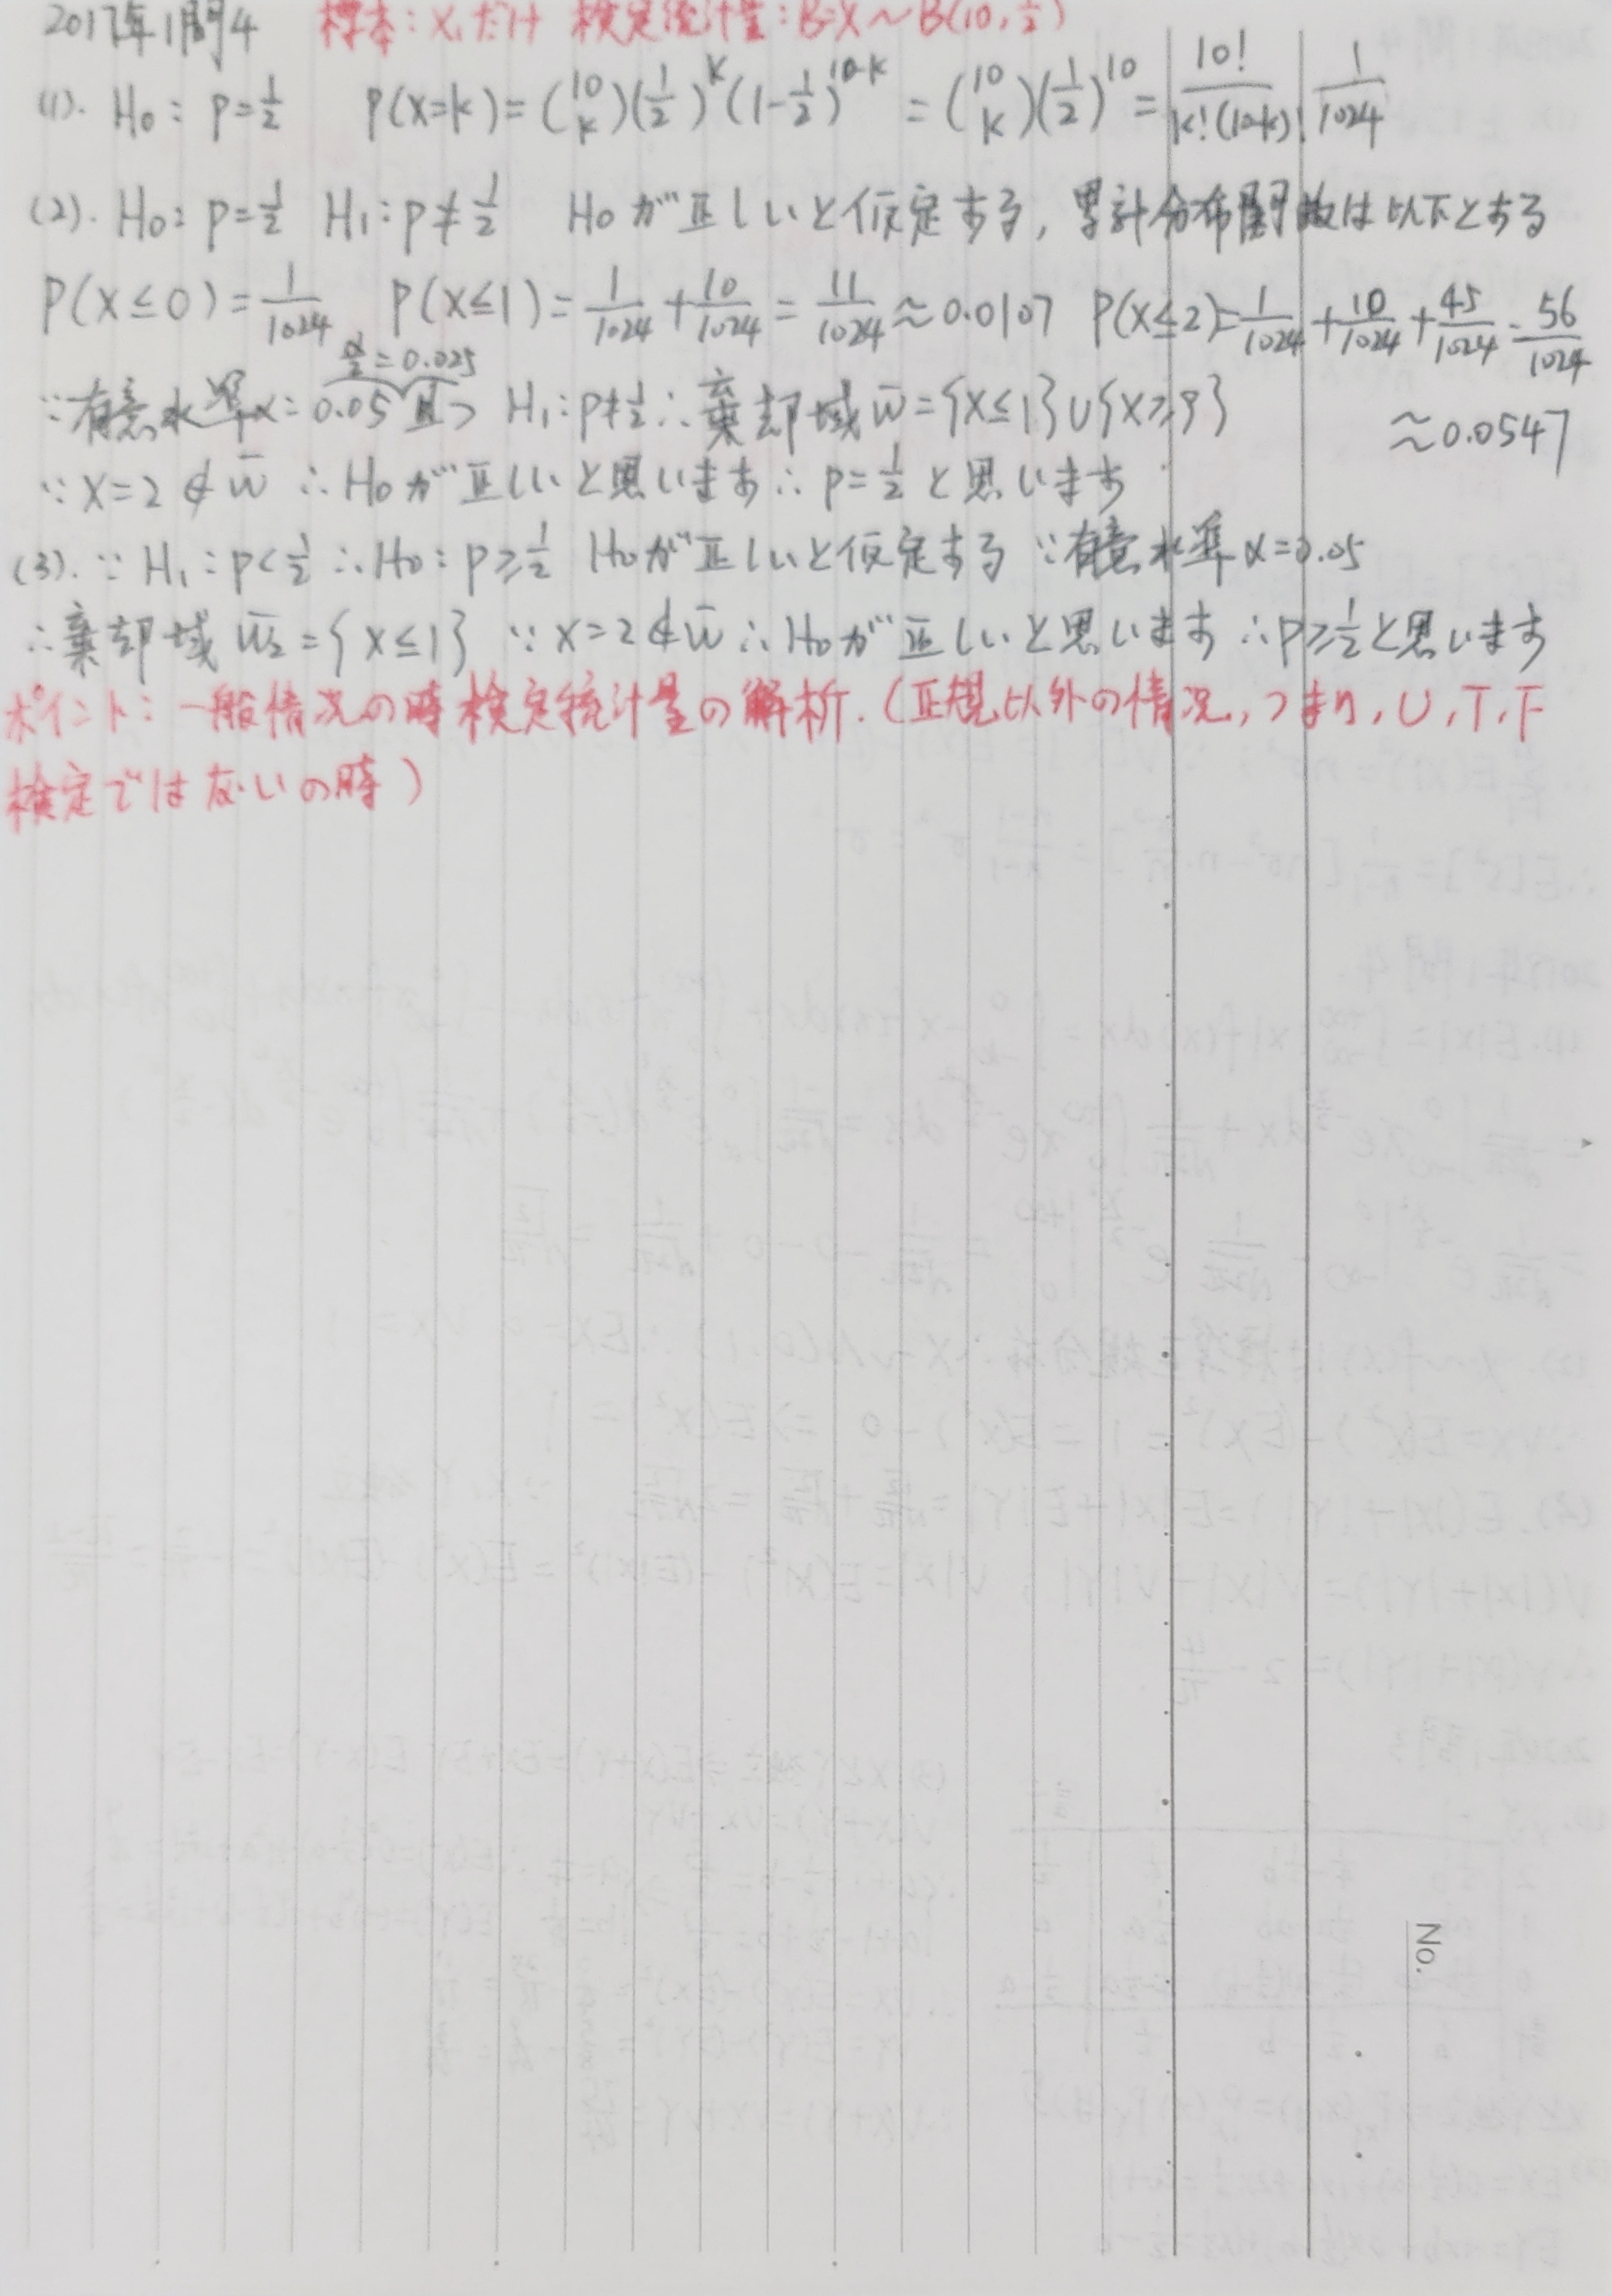 2017年1問4 標本：X₁だけ 検定統計量：B=X～B(10, 1/2)
(1). H₀：p=1/2 P(X=k)=(10 k)(1/2)^k(1-1/2)^(10-k)=(10 k)(1/2)^10=10!/(k!(10-k)!) 1/1024
(2). H₀：p=1/2 H₁：p≠1/2 H₀が正しいと仮定する，累計分布関数は以下とする
P(X≤0)=1/1024 P(X≤1)=1/1024+10/1024=11/1024≈0.0107 P(X≤2)=1/1024+10/1024+45/1024=56/1024
α/2=0.025
∵有意水準α=0.05且つ H₁：p≠1/2∴棄却域 W̄={X≤1}∪{X≥9} ≈0.0547
∵X=2∉W̄ ∴H₀が正しいと思います∴p=1/2と思います
(3). ∵H₁：p<1/2∴H₀：p≥1/2 H₀が正しいと仮定する ∵有意水準α=0.05
∴棄却域 W̄₂={X≤1} ∵X=2∉W̄∴H₀が正しいと思います∴p≥1/2と思います
ポイント：一般情况の時検定統計量の解析.（正規以外の情况，つまり，U,T,F
検定ではないの時）
No.